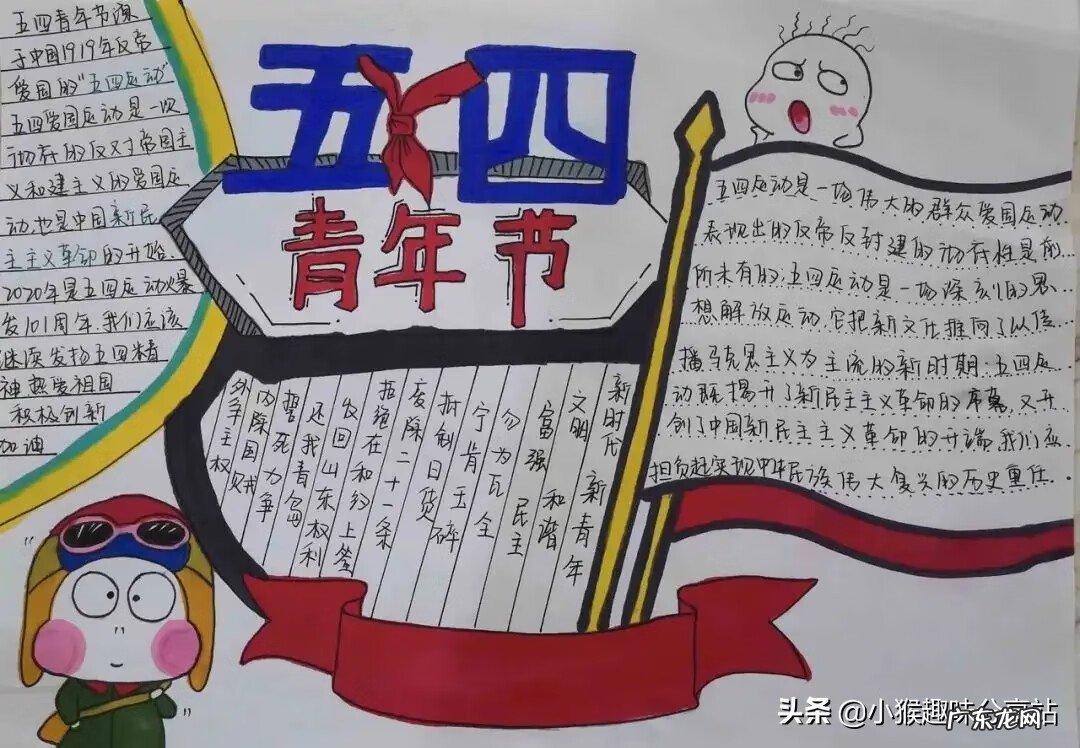 五四青年节源
于中国1919年反帝
爱国的"五四运动"
五四爱国运动是一次
彻底的反对帝国主
义和建主义的爱国运
动,也是中国新民
主主义革命的开始.
2020年是五四运动爆
发101周年,我们应该
继续发扬五四精
神热爱祖国
积极创新
加油
五四
青年节
新时代 新青年
文明 和谐
富强 民主
勿为瓦全
宁肯玉碎
抵制日货
废除二十一条
拒绝在和约上签
发回山东权利
还我青岛
誓死力争
内除国贼
外争主权
五四运动是一场伟大的群众爱国运动.
表现出的反帝反封建的彻底性是前
所未有的.五四运动是一场深刻的思
想解放运动,它把新文化推向了以传
播马克思主义为主流的新时期:五四运
动既揭开了新民主主义革命的序幕,又开
创了中国新民主主义革命的开端.我们应
担负起实现中华民族伟大复兴的历史重任.
头条 @小猴趣味分享站
广东龙网